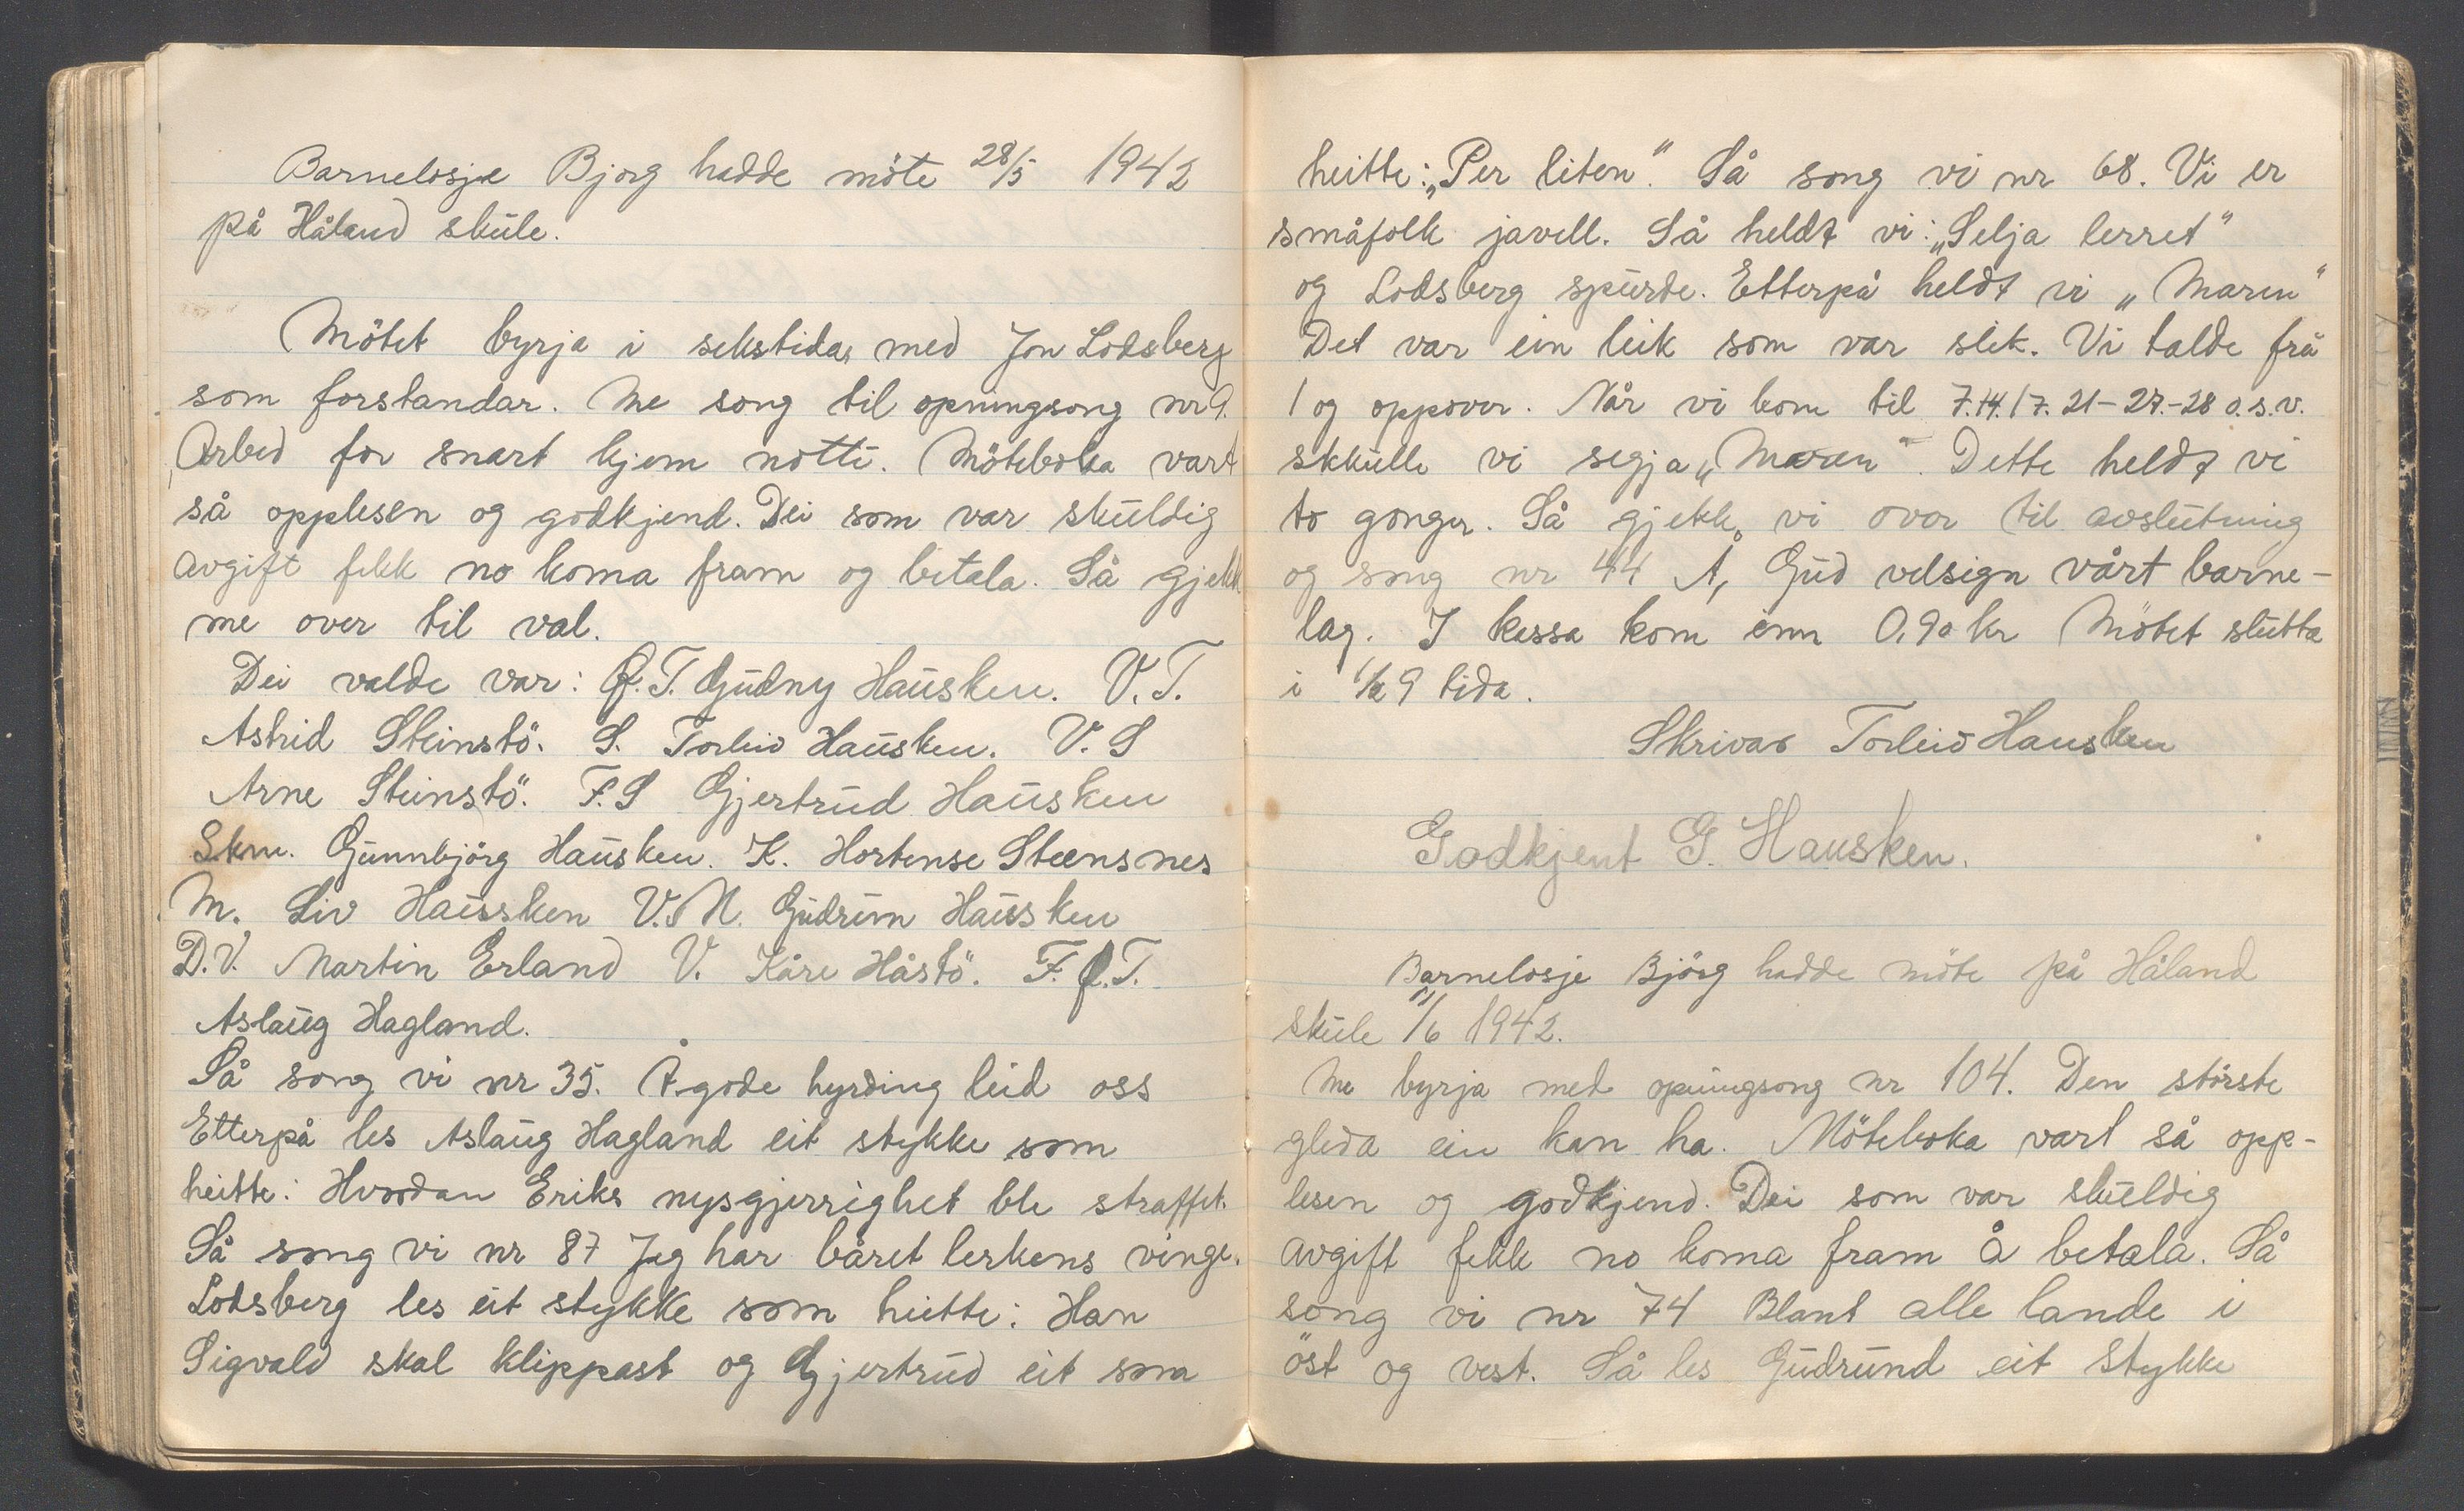 Barnelosje Bjørg hadde möte 28/5 1942
på Håland skule.
Mötet byrja i sekstida, med Jon Lodsberg
som forstandar. Me song til opningsong nr 9.
Arbed for snart kjem notti. Möteboka vart
så opplesen og godkjend. Dei som var skuldig
avgift fekk no koma fram og betala. Så gjekk
me over til val.
Dei valde var: Ø.T. Gudny Hausken. V.T.
Astrid Steinstö. S. Torleiv Hausken. V.S
Arne Steinstö. F.S Gjertrud Hausken
Skm. Gunnbjörg Hausken. K. Hortense Steensnes
M. Liv Haussken V.M. Gudrun Haussken
D.V. Martin Erland V. Kåre Håstö. F.Ø.T.
Aslaug Hagland.
Så song vi nr 35. Å gode hyrding leid oss
Etterpå les Aslaug Hagland eit stykke som
heitte: Hvordan Eriks nysgjerrighet ble straffet.
Så song vi nr 87 Jeg har båret lerkens vinge.
Lodsberg les eit stykke som heitte: Han
Sigvald skal klippast og Gjertrud eit som
heitte: „Per liten". Så song vi nr 68. Vi er
småfolk javell. Så heldt vi: „Selja lerret"
og Lodsberg spurde. Etterpå heldt vi „Maren"
Det var ein leik som var slik. Vi talde frå
1 og oppover. Når vi kom til 7.14.17.21-27.-28 o.s.v.
skkulle vi segja „Maren". Dette heldt vi
to gonger. Så gjekk vi over til avslutning
og song nr 44 Å, Gud velsign vårt barne-
lag. I kassa kom inn 0,90 kr Mötet slutta
i 1/2 9 tida.
Skrivar Torleiv Hausken
Godkjent G. Hausken.
Barnelosje Bjørg hadde möte på Håland
skule 11/6 1942.
Me byrja med opningsong nr 104. Den störste
gleda ein kan ha. Möteboka vart så opp-
lesen og godkjend. Dei som var skuldig
avgift fekk no koma fram å betala. Så
song vi nr 74 Blant alle lande i
öst og vest. Så les Gudrund eit stykke